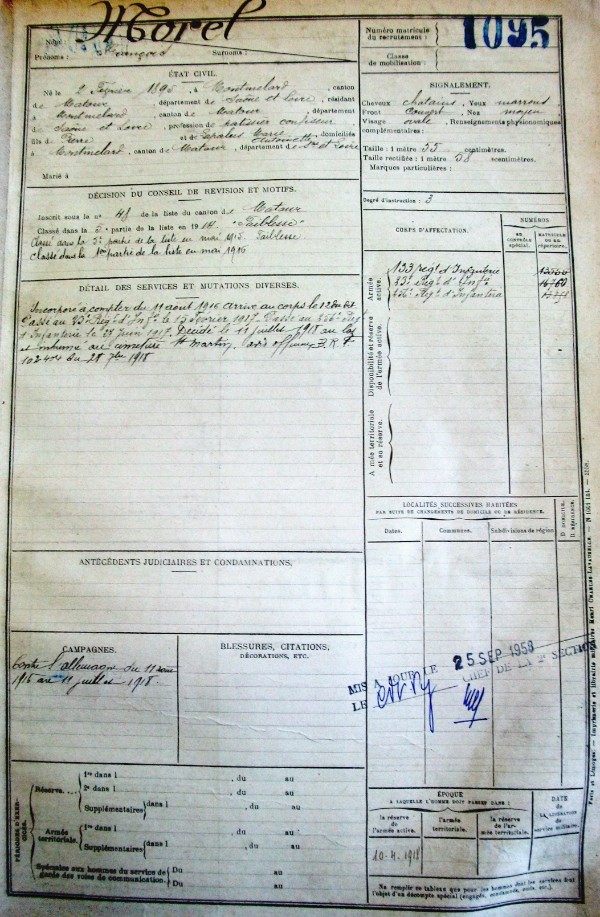 Morel
Nom :
Prénoms : François Surnoms :
Numéro matricule
du recrutement :
1095
Classe
de mobilisation :
ÉTAT CIVIL.
Né le 2 Février 1895, à Montmelard, canton
de Matour, département de Saône et Loire, résidant
à Montmelard, canton de Matour, département
de Saône et Loire, profession de patissier confiseur
fils de Pierre et de Marie Antoinette, domiciliés
à Montmelard, canton de Matour, département de Sne et Loire
Marié à
SIGNALEMENT.
Cheveux chatains, Yeux marrons
Front Nez moyen
Visage ovale, Renseignements physionomiques
complémentaires :
Taille : 1 mètre 55 centimètres.
Taille rectifiée : 1 mètre 58 centimètres.
Marques particulières :
Degré d'instruction : 3
DÉCISION DU CONSEIL DE REVISION ET MOTIFS.
Inscrit sous le n° 48 de la liste du canton de Matour
Classé dans la 5 partie de la liste en 1914 "Faiblesse"
Classé dans la 5e partie de la liste en mai 1915. Faiblesse
classé dans la 1ere partie de la liste en mai 1916
CORPS D'AFFECTATION.
NUMÉROS
au
contrôle
spécial.
matricule
ou au
répertoire.
Armée
active.
133 regt d'Infanterie
23e Regt d'Infie
Regt d'Infanterie
Disponibilité et réserve
de l'armée active.
Armée territoriale
et sa réserve.
DÉTAIL DES SERVICES ET MUTATIONS DIVERSES.
Incorporé à compter du 11 août 1916 Arrivé au corps le 12 dudit
Passé au 23e Regt d'Infie le 15 février 1917. Passé au Regt
d'Infanterie le 28 Juin 1917. Décédé le 11 juillet 1918 au
et inhumé au cimetière St Martin, avis officiel
du 28 7bre 1918
LOCALITÉS SUCCESSIVES HABITÉES
PAR SUITE DE CHANGEMENTS DE DOMICILE OU DE RÉSIDENCE.
Dates. Communes. Subdivisions de région
D domicile.
R résidence.
ANTÉCÉDENTS JUDICIAIRES ET CONDAMNATIONS.
CAMPAGNES.
Contre l'allemagne du 11 août
1916 au 11 juillet 1918.
BLESSURES, CITATIONS,
DÉCORATIONS, ETC.
MIS A JOUR LE 25 SEP 1958
LE CHEF DE LA 2e SECTION
PÉRIODES D'EXERCICES.
Réserve
1re dans l , du au
2e dans l , du au
Supplémentaires dans l , du au
, du au
Armée
territoriale.
1re dans l , du au
Supplémentaires dans l , du au
, du au
Spéciales aux hommes du service de
garde des voies de communication.
Du au
Du au
ÉPOQUE
A LAQUELLE L'HOMME DOIT PASSER DANS :
la réserve
de l'armée active.
l'armée
territoriale.
la réserve
de l'armée territoriale.
DATE
de la
LIBÉRATION
du
service militaire.
10-4-1918
Ne remplir ce tableau que pour les hommes dont les services font
l'objet d'un décompte spécial (engagés, condamnés, omis, etc.)
Paris et Limoges. — Imprimerie et librairie militaires Henri Charles-Lavauzelle.